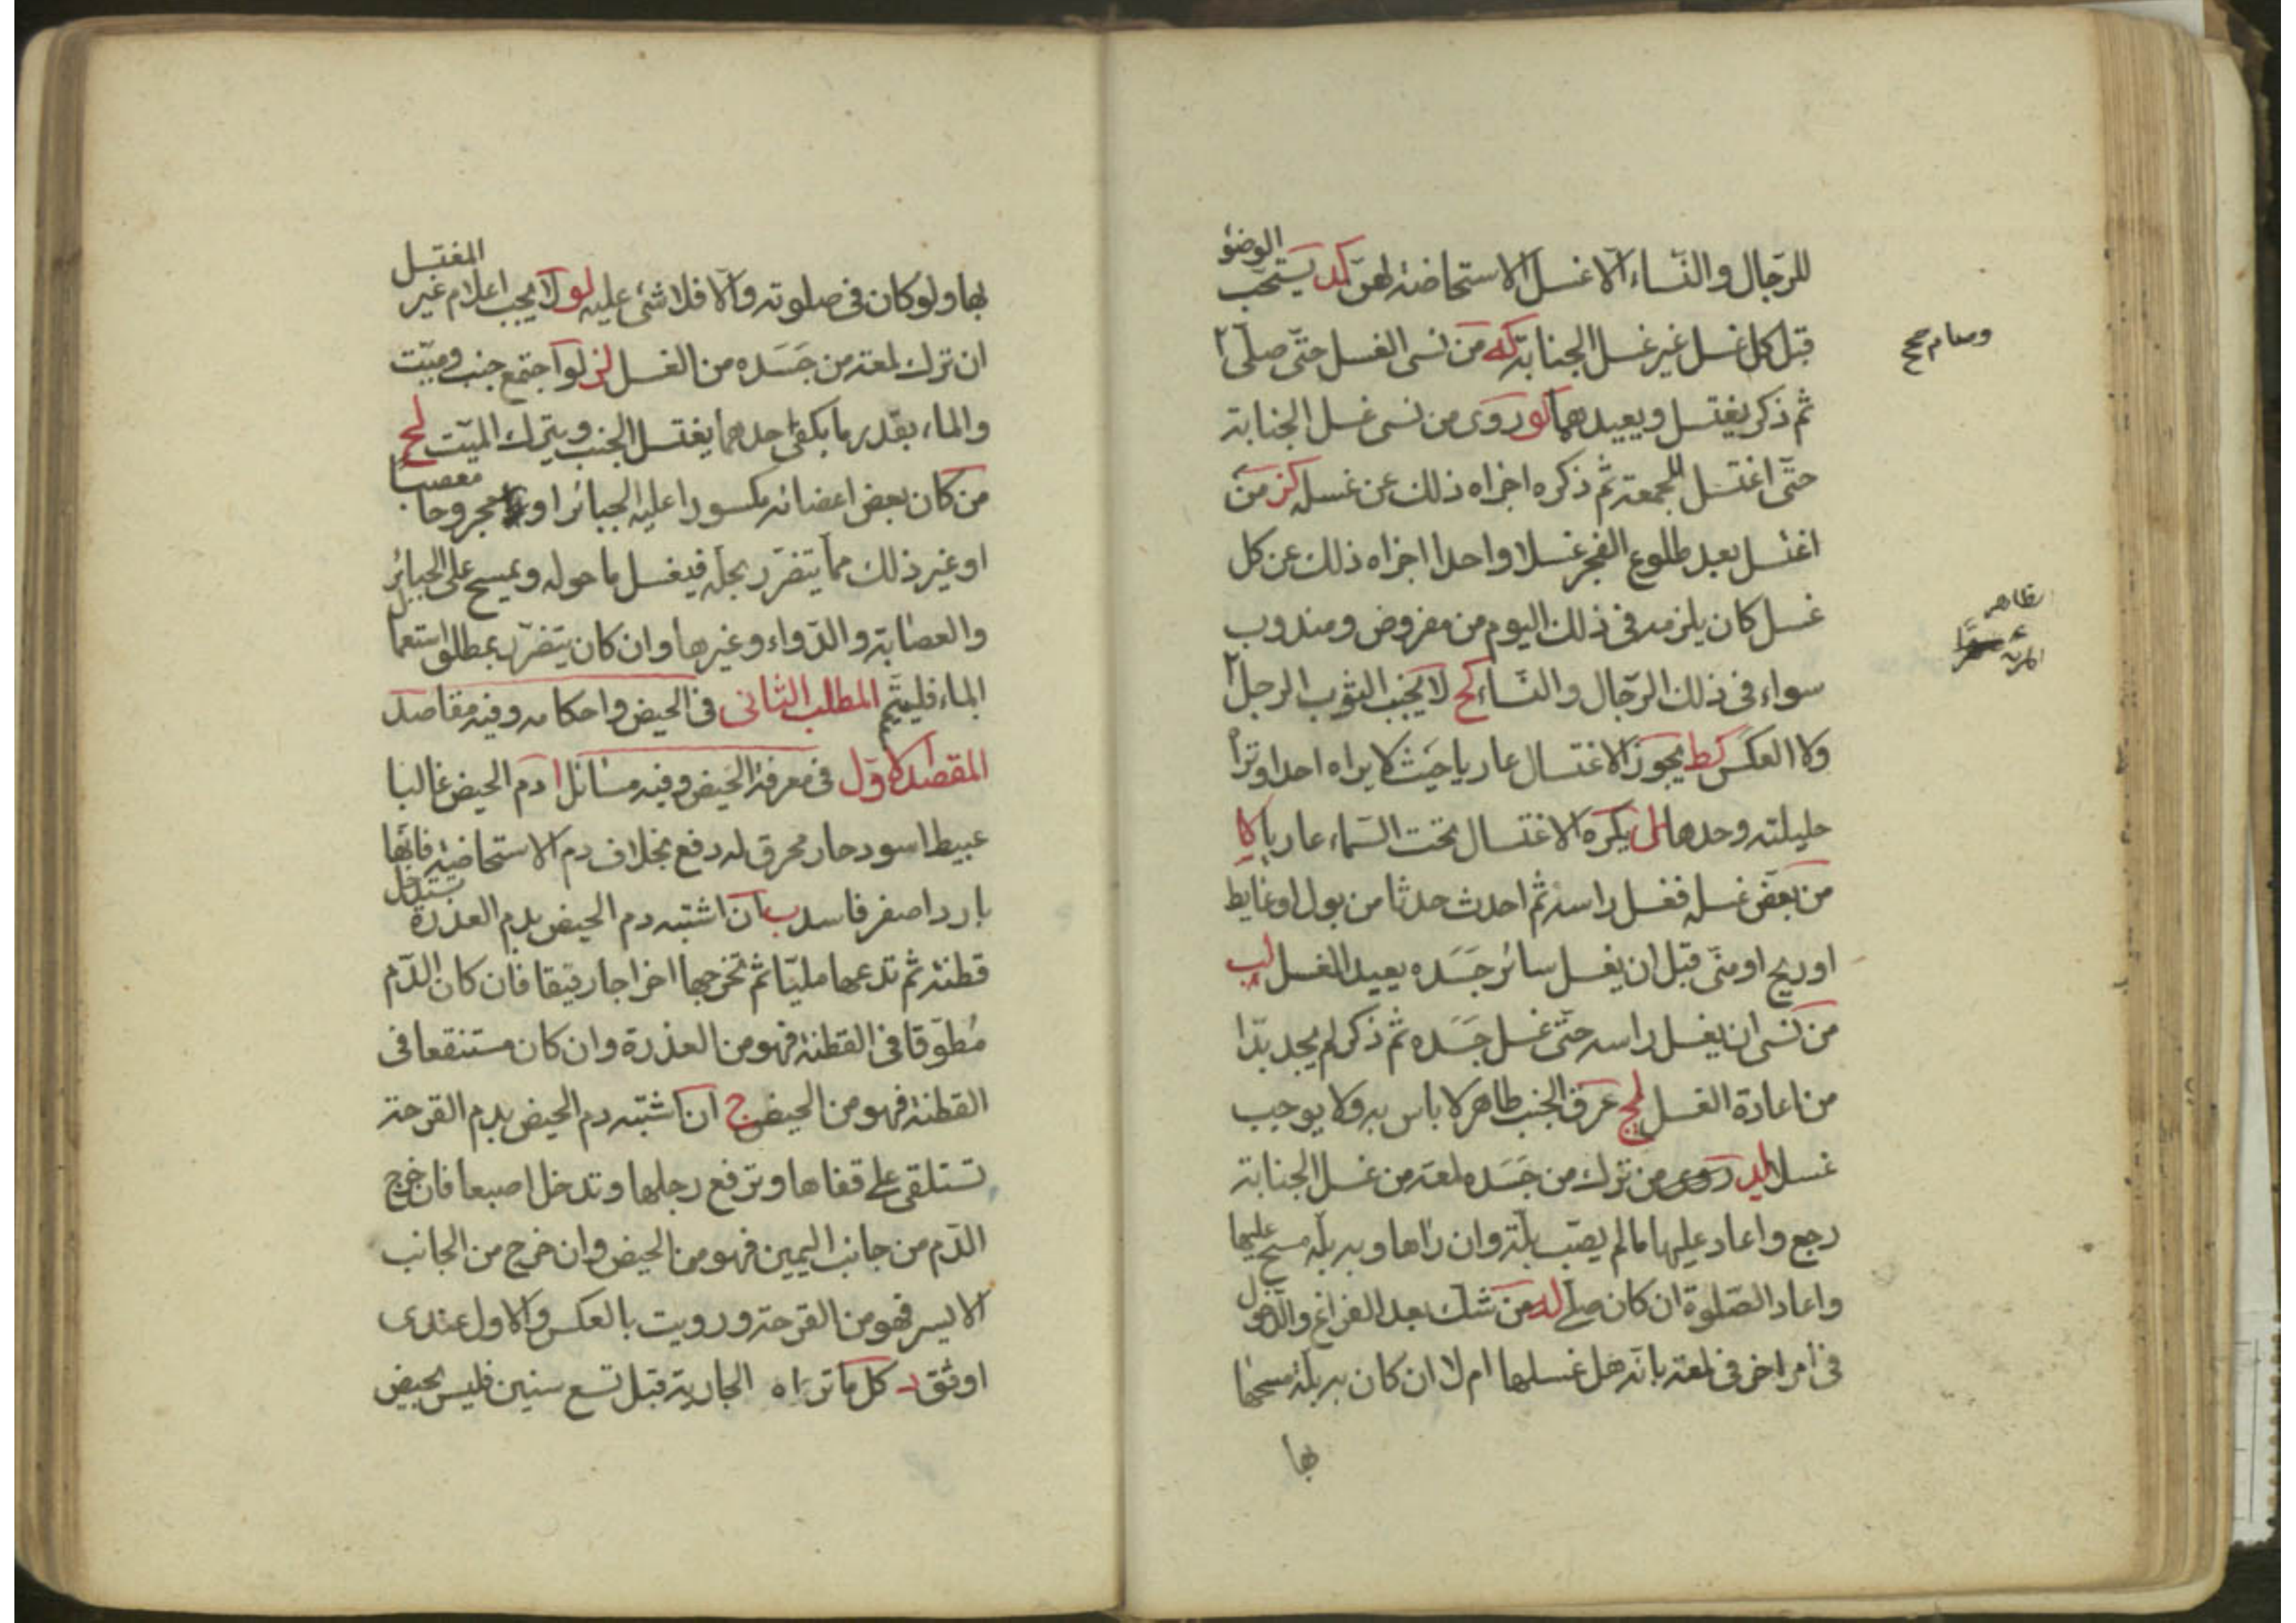 للرّجال والنّساء الّا غسل الاستحاضة لهنّ كد يستحبّ الوضوء
قبل كل غسل غير غسل الجنابة كه من نسى الغسل حتّى صلّى ٢
وصام صح
ثم ذكر يغتسل ويعيدهما كو روى من نسى غسل الجنابة
حتّى اغتسل للجمعة ثم ذكره اجزاه ذلك عن غسله كز من
اغتسل بعد طلوع الفجر غسلا واحدا اجزاه ذلك عن كل
غسل كان يلزمه فى ذلك اليوم من مفروض ومندوب
ظاهر
سواء فى ذلك الرّجال والنّساء كح لا يجنب الثوب الرجل ٢
ولا العكس كط يجوز الاغتسال عاريا حيث لا يراه احد او تراه
حليلته وحدها ل يكره الاغتسال تحت السّماء عاريا لا
من بعّض غسله فغسل راسه ثم احدث حدثا من بول او غايط
او ريح او منّى قبل ان يغسل سائر جَسَده يعيد الغسل لب
من نسى ان يغسل راسه حتّى غسل جَسَده ثم ذكر لم يجد بدّا
من اعادة الغسل لج عرق الجنب طاهر لا باس به ولا يوجب
غسلا لد روى من ترك من جَسَده لمعة من غسل الجنابة
رجع واعاد عليها ما لم يصب بلّة وان راها وبه بلّة مسح عليها
واعاد الصّلوة ان كان صلّى له من شك بعد الفراغ والدخول
فى امر اخر فى لمعة بانّه هل غسلها ام لا ان كان به بلّة مسحها
بها
بها ولو كان فى صلوته والّا فلا شئ عليه لو لا يجب اعلام غير المغتسل
ان ترك لمعة من جَسَده من الغسل لز لو اجتمع جنب وميّت
والماء بقدر ما يكفى احدهما يغتسل الجنب ويترك الميّت لح
من كان بعض اعضائه مكسورا عليه الجبائر او معصبا مجروحا
او غير ذلك مما يتضرّر بحلّه فيغسل ما حوله ويمسح على الجبائر
والعصابة والدّواء وغيرها وان كان يتضرّر بمطلق استعمال
الماء فليتيمّم المطلب الثانى فى الحيض واحكامه وفيه مقاصد
المقصد الاوّل فى معرفة الحيض وفيه مسائل ا دم الحيض غالبا
عبيط اسود حار محرق له دفع بخلاف دم الاستحاضة فانّها
بارد اصفر فاسد ب ان اشتبه دم الحيض بدم العذرة تستدخل
قطنة ثم تدعها مليّا ثم تخرجها اخراجا رقيقا فان كان الدّم
مُطوّقا فى القطنة فهو من العذرة وان كان مستنقعا فى
القطنة فهو من الحيض ج ان اشتبه دم الحيض بدم القرحة
تستلقى على قفاها وترفع رجلها وتدخل اصبعا فان خرج
الدّم من جانب اليمين فهو من الحيض وان خرج من الجانب
الايسر فهو من القرحة ورويت بالعكس والاول عندى
اوثق د كل ما تراه الجارية قبل تسع سنين فليس بحيض